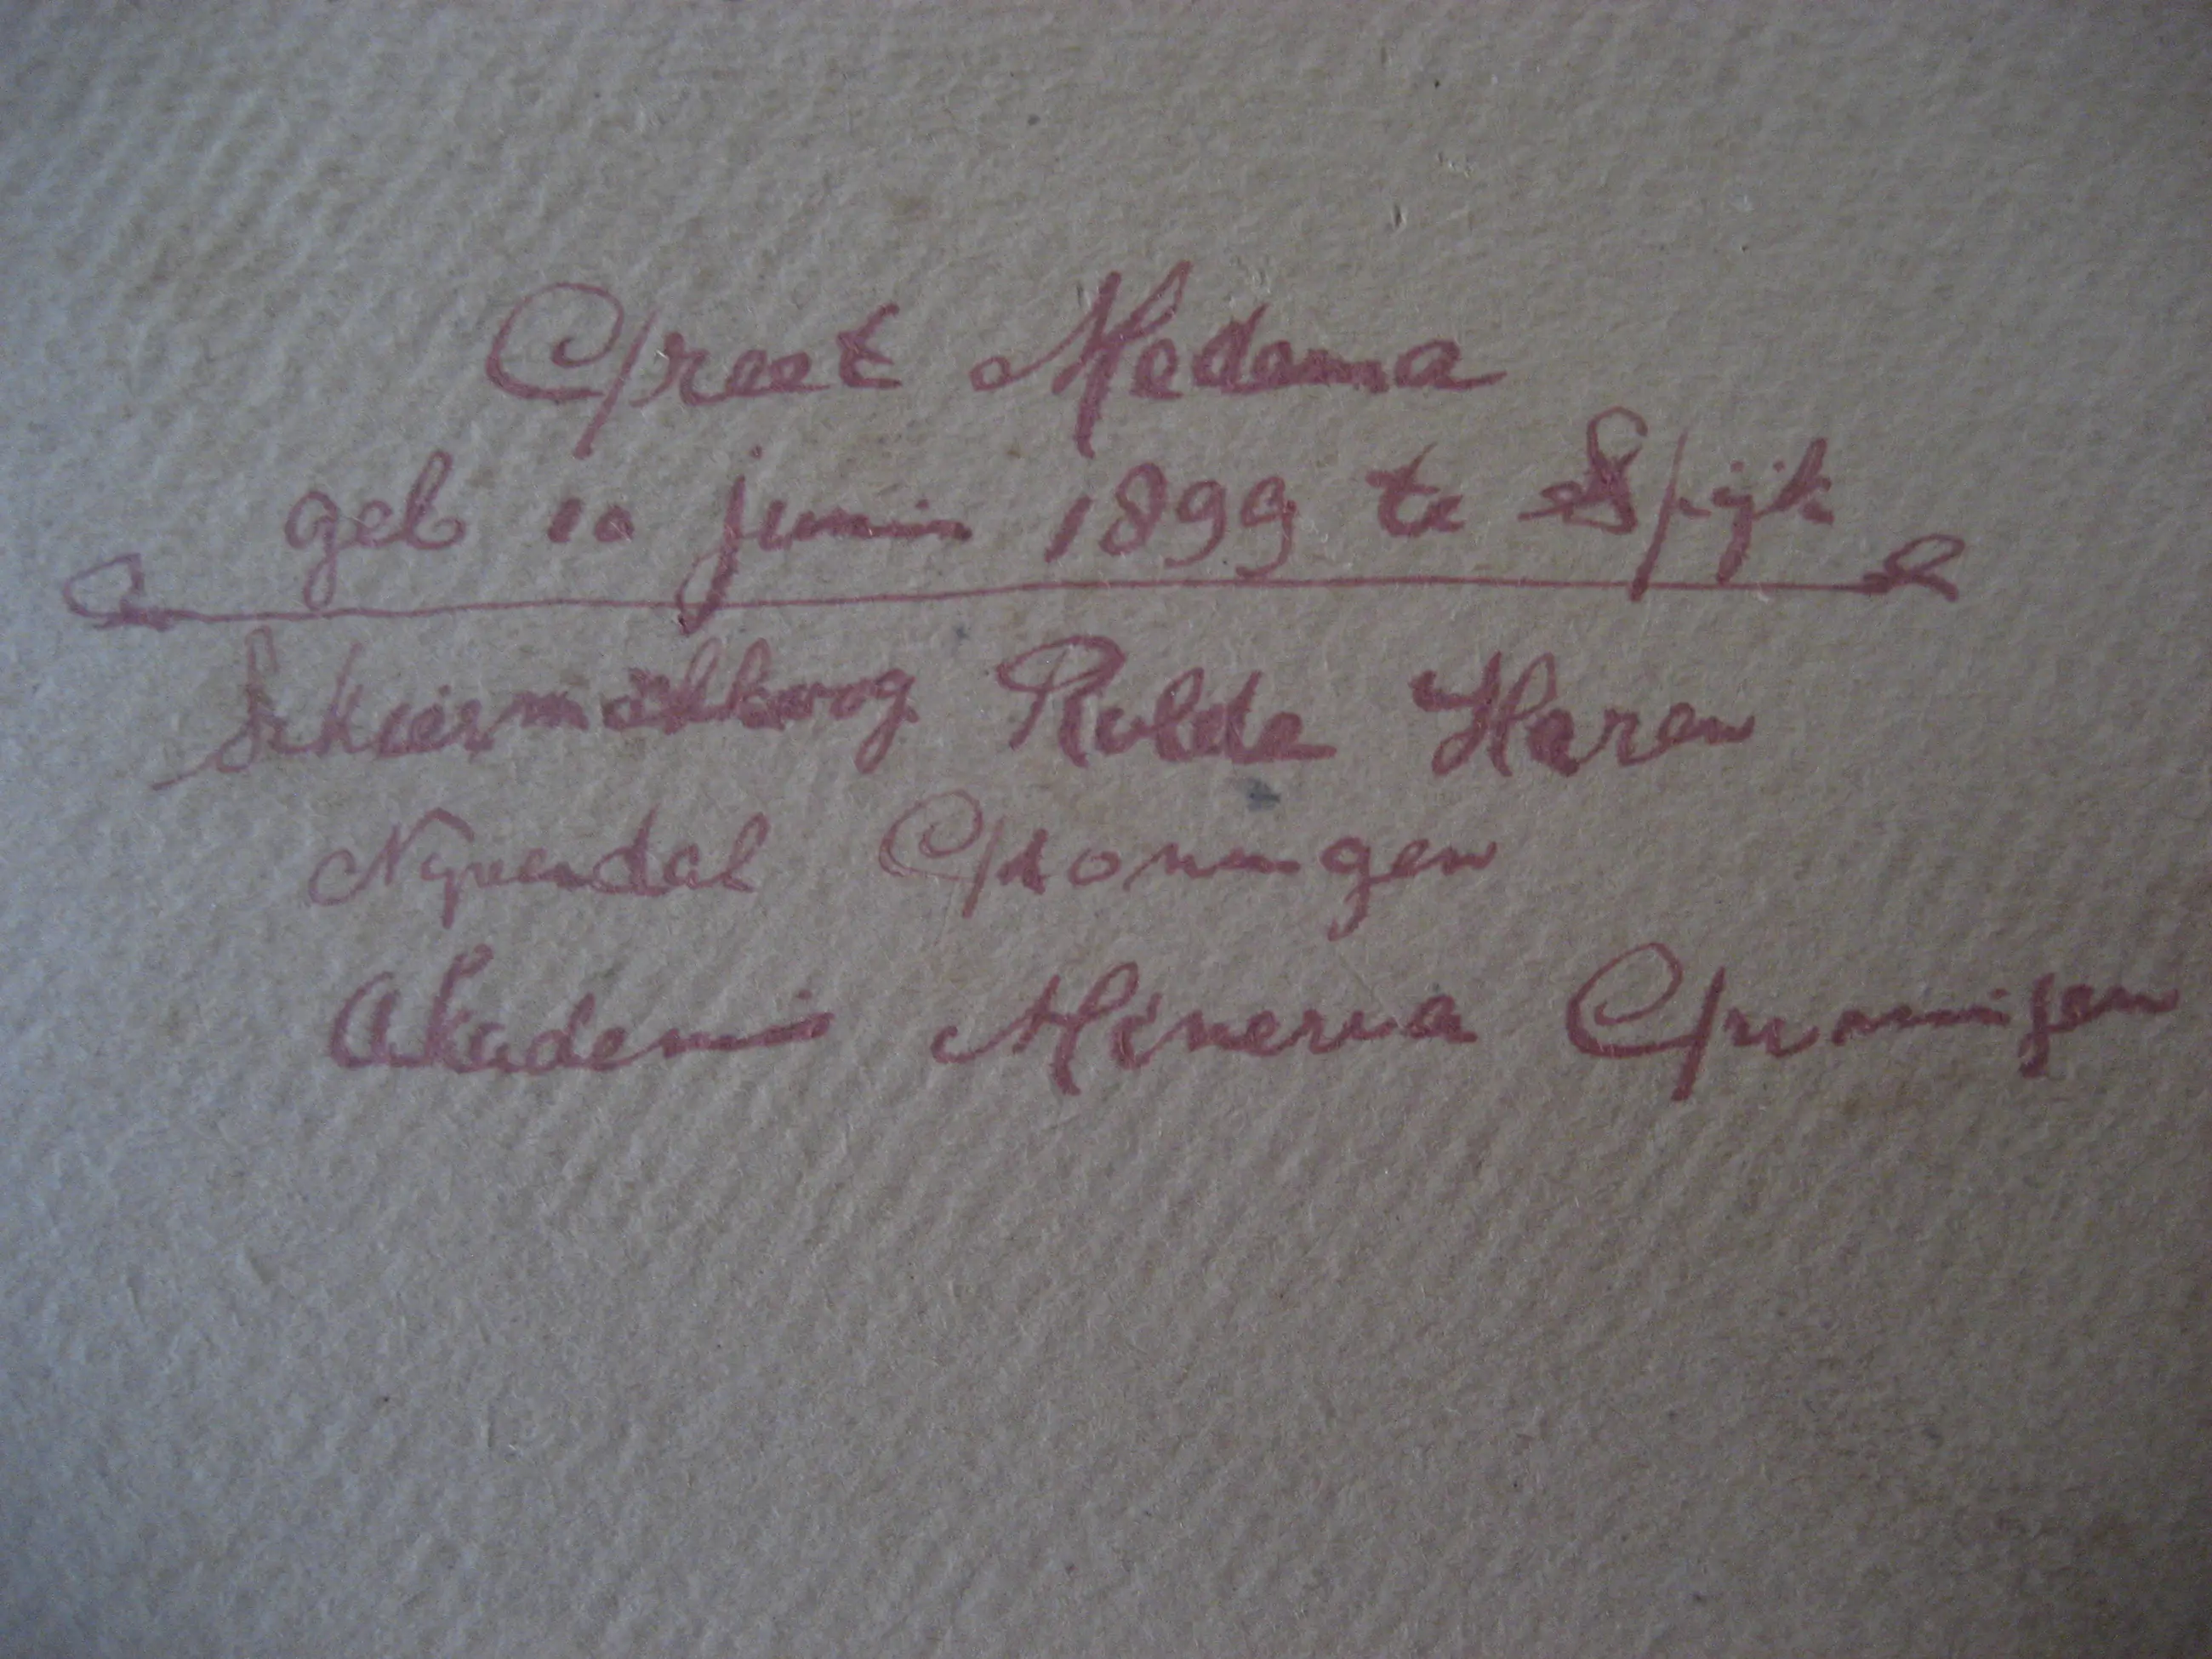 Greet Medema
geb 10 juni 1899 te Spijk
Schiermonikkoog Rolde Haren
Groningen
Akademie Minerva Groningen